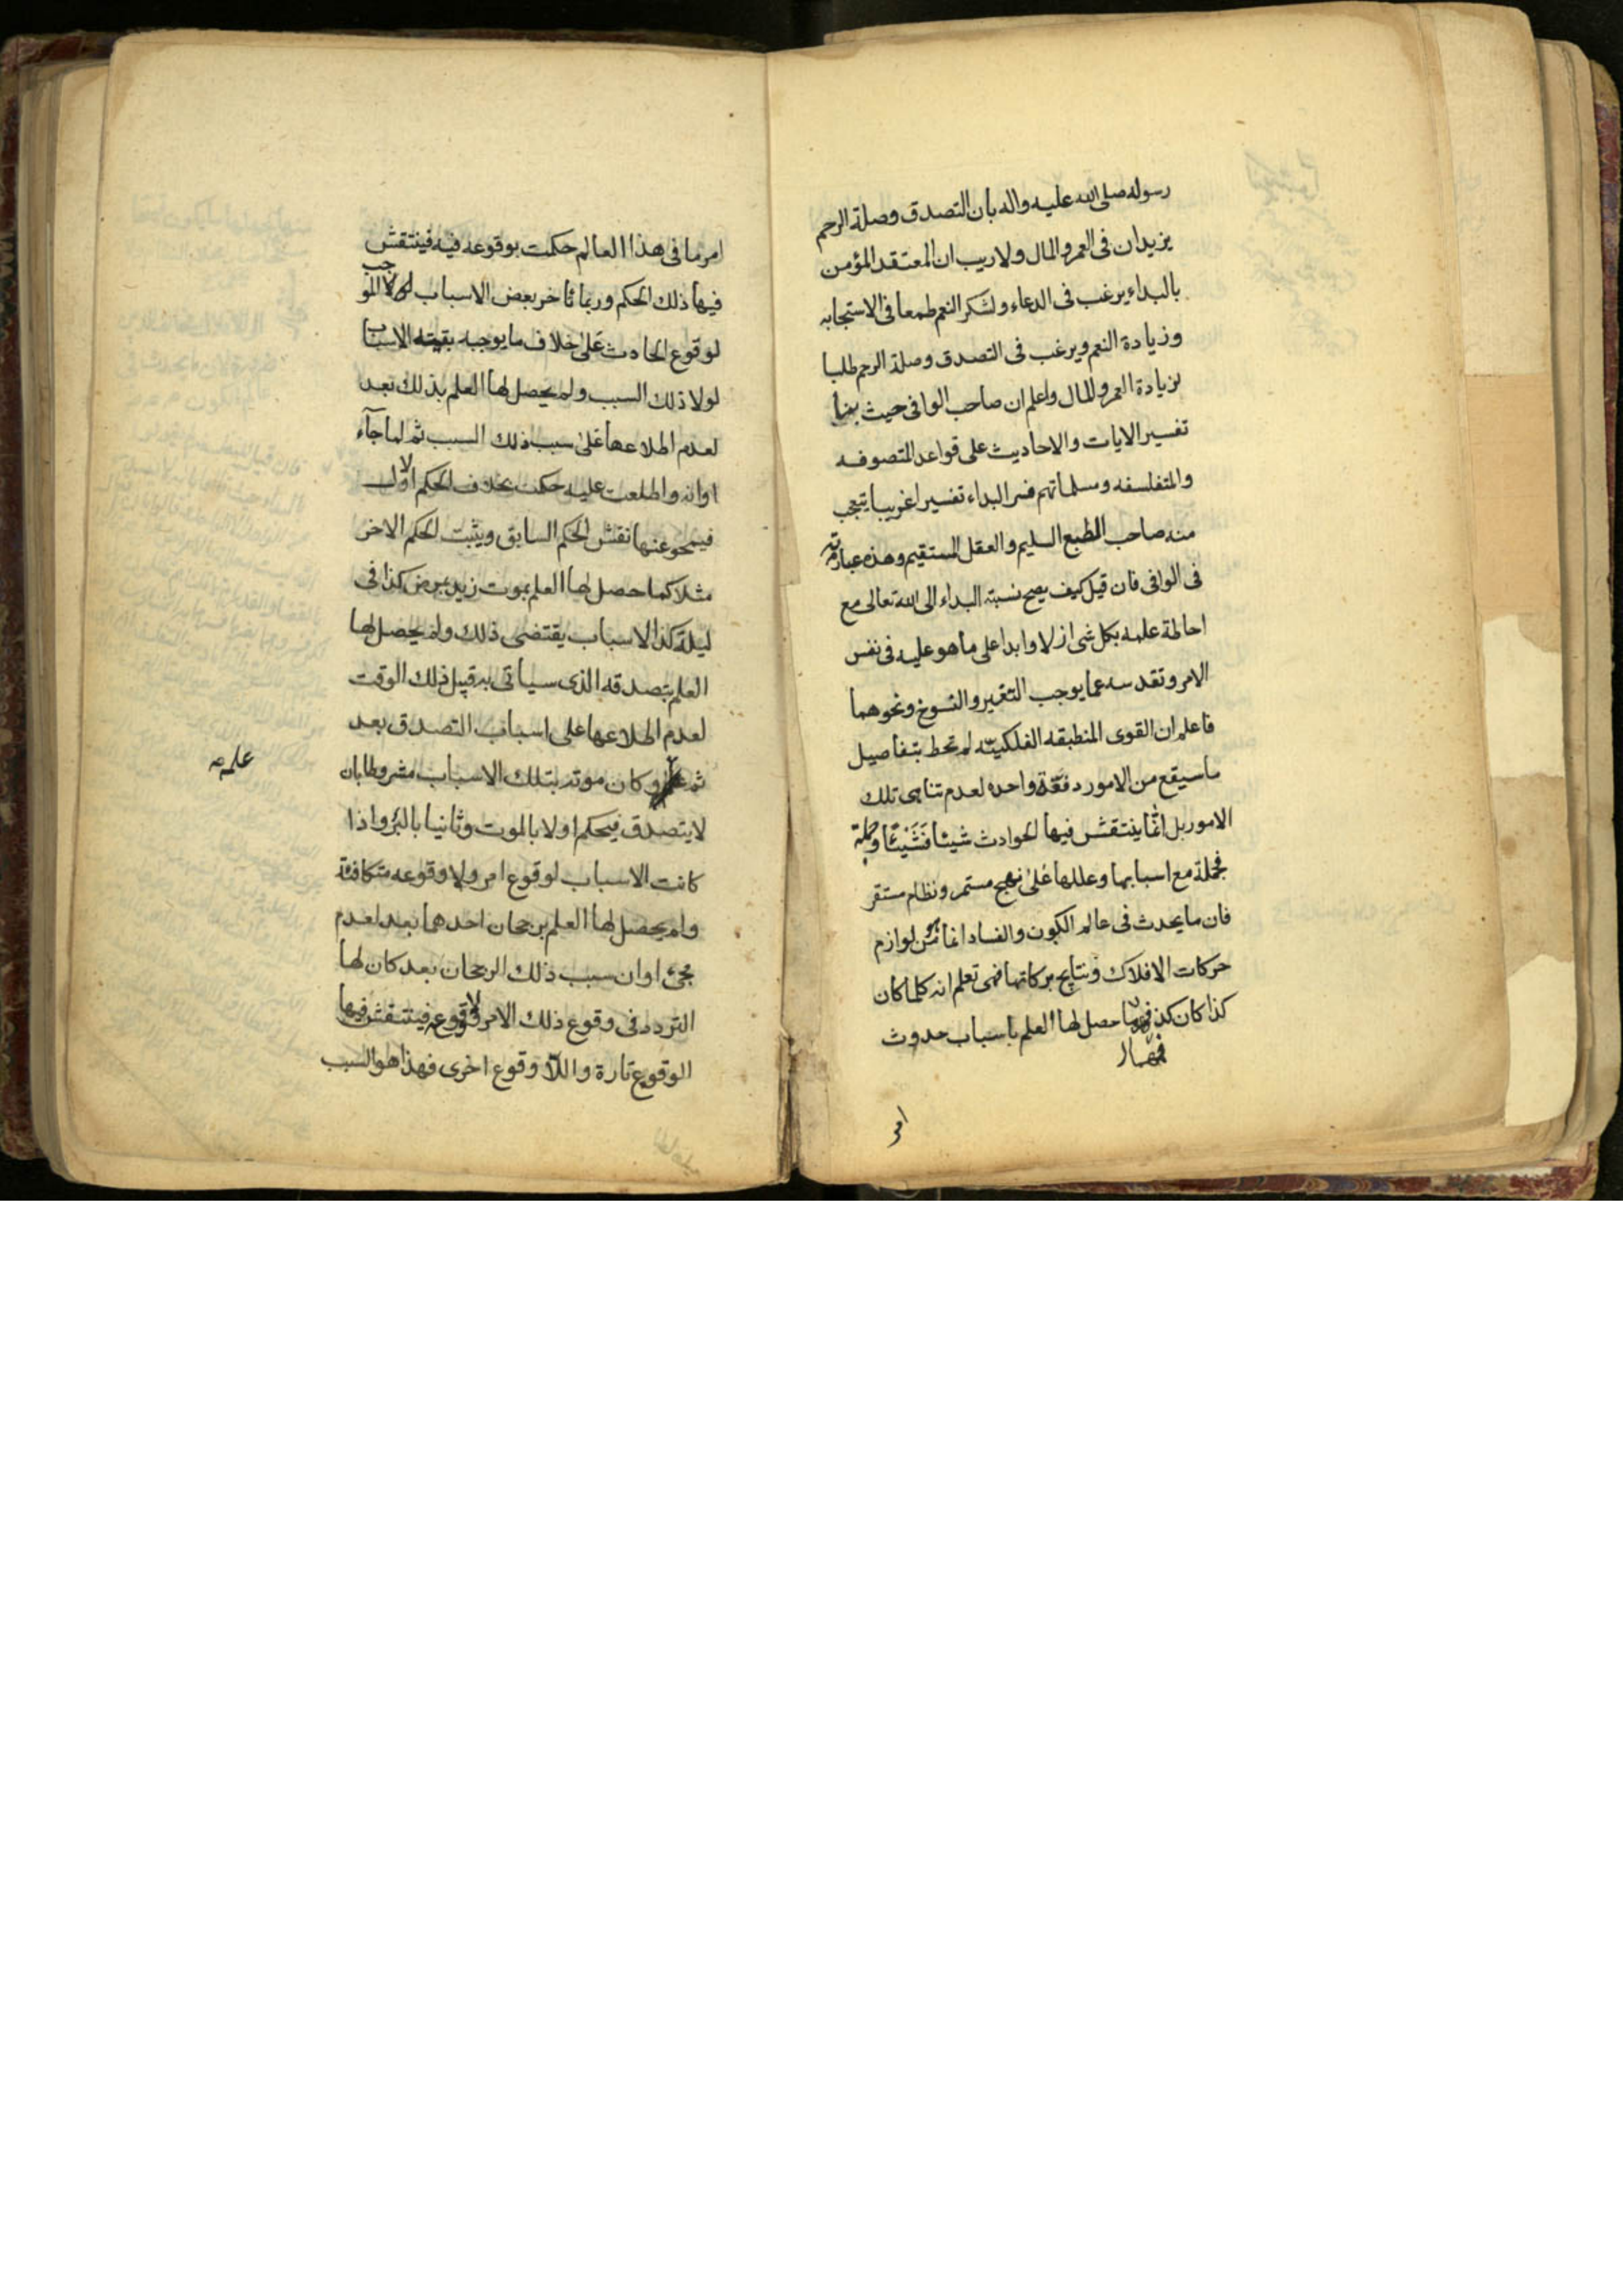 رسوله صلى الله عليه واله بان التصدق وصلة الرحم
يزيدان فى العمر والمال ولا ريب ان المعتقد المؤمن
بالبداء يرغب فى الدعاء ولشكر النعم طمعا فى الاستجابه
وزيادة النعم ويرغب فى التصدق وصلة الرحم طلبا
لزيادة العمر والمال واعلم ان صاحب الوافى حيث
تفسير الايات والاحاديث على قواعد المتصوفه
والمتفلسفه ومسلماتهم فسر البداء تفسيرا غريبا يتعجب
منه صاحب الطبع السليم والعقل المستقيم وهذه عبارته
فى الوافى فان قيل كيف يصح نسبة البداء الى الله تعالى مع
احاطة علمه بكل شى ازلا وابدا على ما هو عليه فى نفس
الامر وتقدسه عما يوجب التغير والنسوخ ونحوهما
فاعلم ان القوى المنطبقه الفلكيّه لم تحط بتفاصيل
ما سيقع من الامور دفعة واحده لعدم تناهى تلك
الامور بل انما ينتقش فيها الحوادث شيئا فشيئا وجملة
فجملة مع اسبابها وعللها على نهج مستمر ونظام مستقر
فان ما يحدث فى عالم الكون والفساد انما من لوازم
حركات الافلاك ونتايج بركاتها فهى تعلم انه كلما كان
كذا كان كذا حصل لها العلم باسباب حدوث
فمهما
امر
امر ما فى هذا العالم حكمت بوقوعه فيه فينتقش
فيها ذلك الحكم وربما تاخر بعض الاسباب الموجب
لوقوع الحادث على خلاف ما يوجبه بقية الاسباب
لولا ذلك السبب ولم يحصل لها العلم بذلك بعد
لعدم اطلاعها على سبب ذلك السبب ثم لما جآء
اوانه واطلعت عليه حكمت بخلاف الحكم الاول
فيمحو عنها نقش الحكم السابق ويثبت الحكم الاخر
مثلا كما حصل لها العلم بموت زيد بمرض كذا فى
ليلة كذا لاسباب يقتضى ذلك ولم يحصل لها
العلم بتصدقه الذى سياتى به قبيل ذلك الوقت
لعدم اطلاعها على اسباب التصدق بعد
ثم وكان موته بتلك الاسباب مشروطا بان
علمه
لا يتصدق فيحكم اولا بالموت وثانيا بالبرء واذا
كانت الاسباب لوقوع امر ولا وقوعه متكافئة
ولم يحصل لها العلم برجحان احدهما بعد لعدم
مجئ اوان سبب ذلك الرجحان بعد كان لها
التردد فى وقوع ذلك الامر ولا وقوعه فينتقش فيها
الوقوع تارة واللا وقوع اخرى فهذا هو السبب